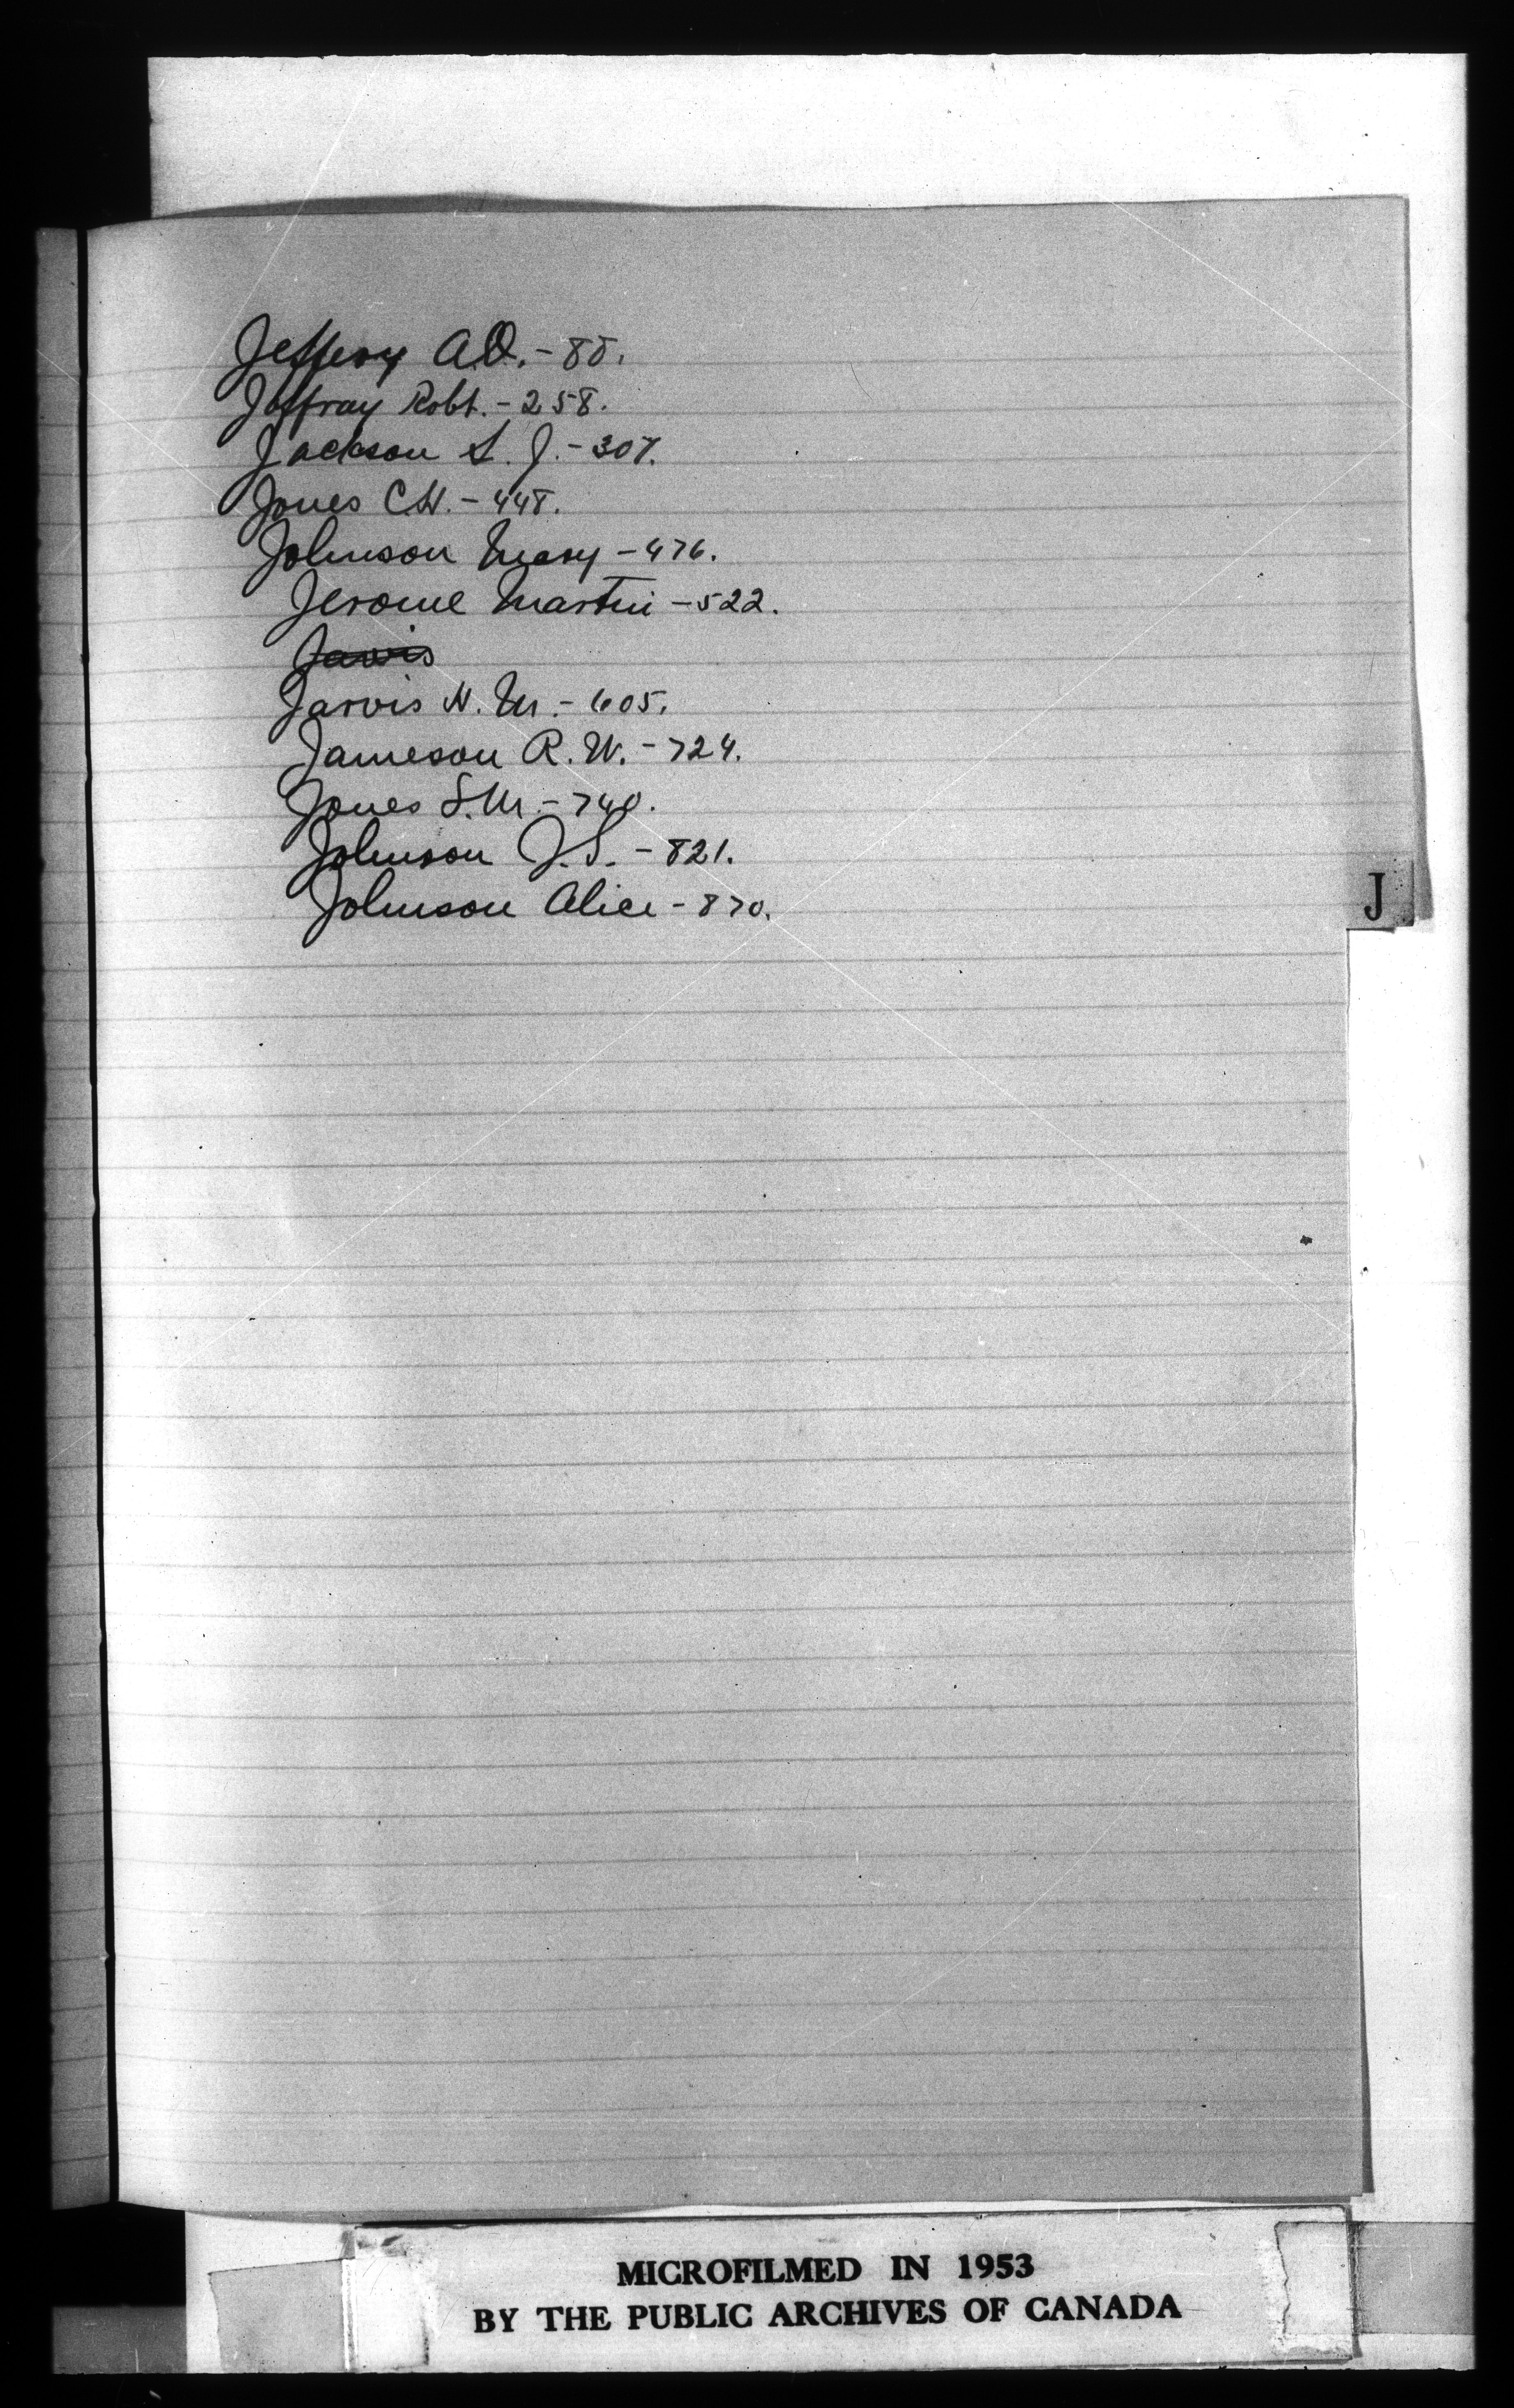 Jeffery A.O. - 88.
Jaffray Robt. - 258.
Jackson S. J. - 307.
Jones C.H. - 448.
Johnson Mary - 476.
Jerome Martin - 522.
Jarvis
Jarvis H. M. - 605.
Jameson R. W. - 724.
Jones S.M. - 740.
Johnson J. S. - 821.
Johnson Alice - 870.
J
MICROFILMED IN 1953
BY THE PUBLIC ARCHIVES OF CANADA